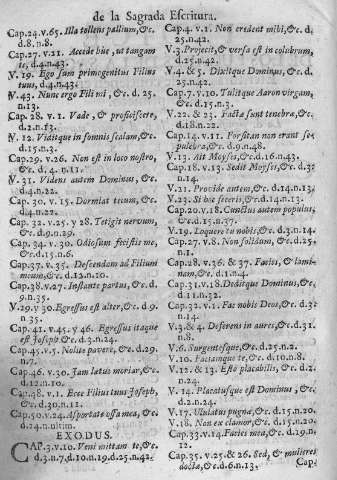 de la Sagrada Escritura.
Cap.24.v.65. Illa tollens pallium, &c.
d.8.n.8.
Cap.27. v.21. Accede huc, ut tangam
te, d.4.n.43.
V. 19. Ego sum primogenitus Filius
tuus, d.4.n.43.
V. 43. Nunc ergo Fili mi, &c. d. 25.
n.13.
Cap.28. v.1. Vade, & proficiscere,
d.2.n.13.
V. 12. Viditque in somnis scalam, &c.
d.15.n.3.
Cap.29. v.26. Non est in loco nostro,
&c. d.4. n.11.
V. 31. Videns autem Dominus, &c.
d.4.n.22.
Cap.30. v.15. Dormiat tecum, &c.
d.4.n.22.
Cap.32. v.25. y 28. Tetigit nervum,
&c. d.9.n.29.
Cap.34. v.30. Odiosum fecistis me,
&c. d.15.n.6.
Cap.37. v.35. Descendam ad Filium
meum, &c. d.12.n.10.
Cap.38. v.27. Instante partus, &c. d.
9.n.35.
V.29. y 30. Egressus est alter, &c. d.
9.n.35.
Cap.41. v.45. y 46. Egressus itaque
est Joseph &c. d.3.n.24.
Cap.45. v.5. Nolite pavere, &c. d.29.
n.7.
Cap.46. v.30. Jam lætus moriar, &c.
d.12.n.10.
Cap.48. v.1. Ecce Filius tuus Joseph,
&c. d.30.n.11.
Cap.50. v.24. Asportate ossa mea, &c.
d.24.n.ultim.
EXODUS.
CAp.3.v.10. Veni mittam te, &c.
d.3.n.7.d.10.n.19.d.25.n.42.
Cap.4. v.1. Non credent mihi, &c. d.
25.n.42.
V.3. Projecit, & versa est in colubrum,
d.25.n.42.
V.4. & 5. Dixitque Dominus, &c. d.
25.n.42.
Cap.7. v.10. Tulitque Aaron virgam,
&c. d.15.n.3.
V.22. & 23. Factæ sunt tenebræ, &c.
d.18.n.22.
Cap.14. v.11. Forsitan non erant se-
pulchra, &c. d.9.n.48.
V.13. Ait Moyses, &c. d.16.n.43.
Cap.18. v.13. Sedit Moyses, &c. d.3.
n.14.
V.21. Provide autem, &c. d.14.n.13.
V.23. Si hoc feceris, &c. d.14.n.13.
Cap.20. v.18. Cunctus autem populus,
&c. d.15.n.37.
V.19. Loquere tu nobis, &c. d.3.n.14.
Cap.27. v.8. Non solidum, &c. d.25.
n.1.
Cap.28. v.36. & 37. Facies, & lami-
nam, &c. d.1.n.4.
Cap.31. v.18. Deditque Dominus, &c.
d.11.n.32.
Cap.32. v.1. Fac nobis Deos, &c. d.3.
n.14.
V.3. & 4. Deferens in aures, &c. d.31.
V.6. Surgentesque, &c. d.25.n.2.
V.10. Faciamque te, &c. d.10.n.8.
V.12. & 13. Esto placabilis, &c. d.2.
n.24.
V.14. Placatusque est Dominus, &c.
d.2.n.24.
V.17. Ululatus pugnæ, &c. d.15.n.20.
V.18. Non ex clamor, &c. d.15.n.20.
Cap.33. v.14. Facies mea, &c. d.19.n.
12.
Cap.35. v.25. & 26. Sed, & mulieres
doctæ, &c. d.6.n.13.
Cap.